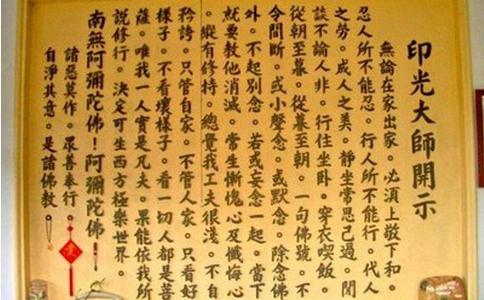 印光大師開示
無論在家出家。必須上敬下和。
忍人所不能忍。行人所不能行。代人
之勞。成人之美。靜坐常思己過。閒
談不論人非。行住坐卧。穿衣喫飯。
從朝至暮。從暮至朝。一句佛號。不
令間斷。或小聲念。或默念。除念佛
外。不起別念。若或妄念一起。當下
就要教他消滅。常生慚愧心及懺悔心
。縱有修持。總覺我工夫很淺。不自
矜誇。只管自家。不管人家。只看好
樣子。不看壞樣子。看一切人都是菩
薩。唯我一人實是凡夫。果能依我所
說修行。決定可生西方極樂世界。
南無阿彌陀佛！阿彌陀佛！
諸惡莫作。眾善奉行。
自淨其意。是諸佛教。